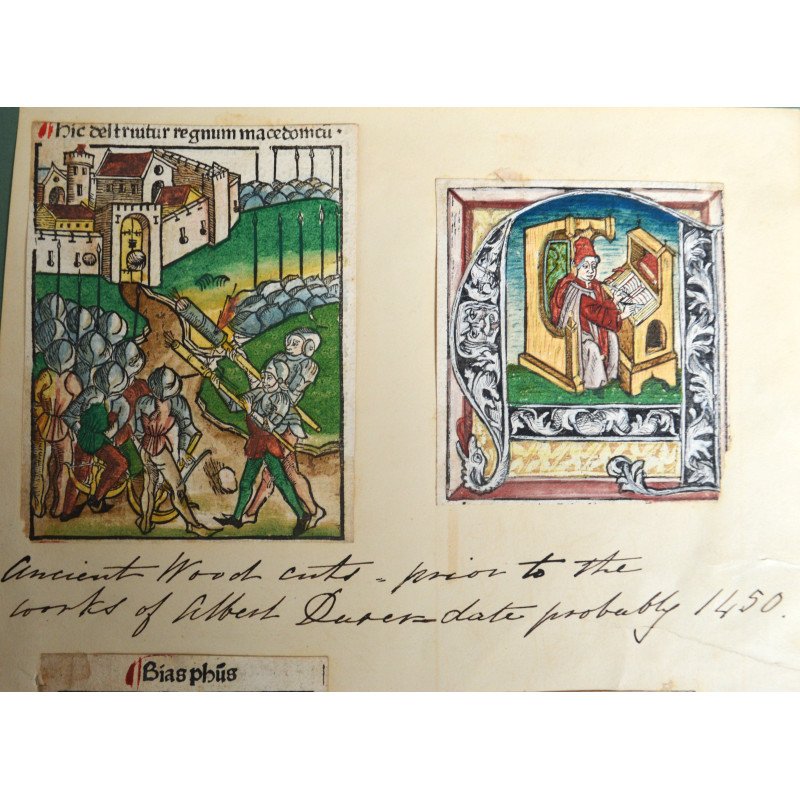 Hic destruitur regnum macedonicū.
Ancient Wood cuts - prior to the
works of Albert Durer - date probably 1450.
Bias phūs